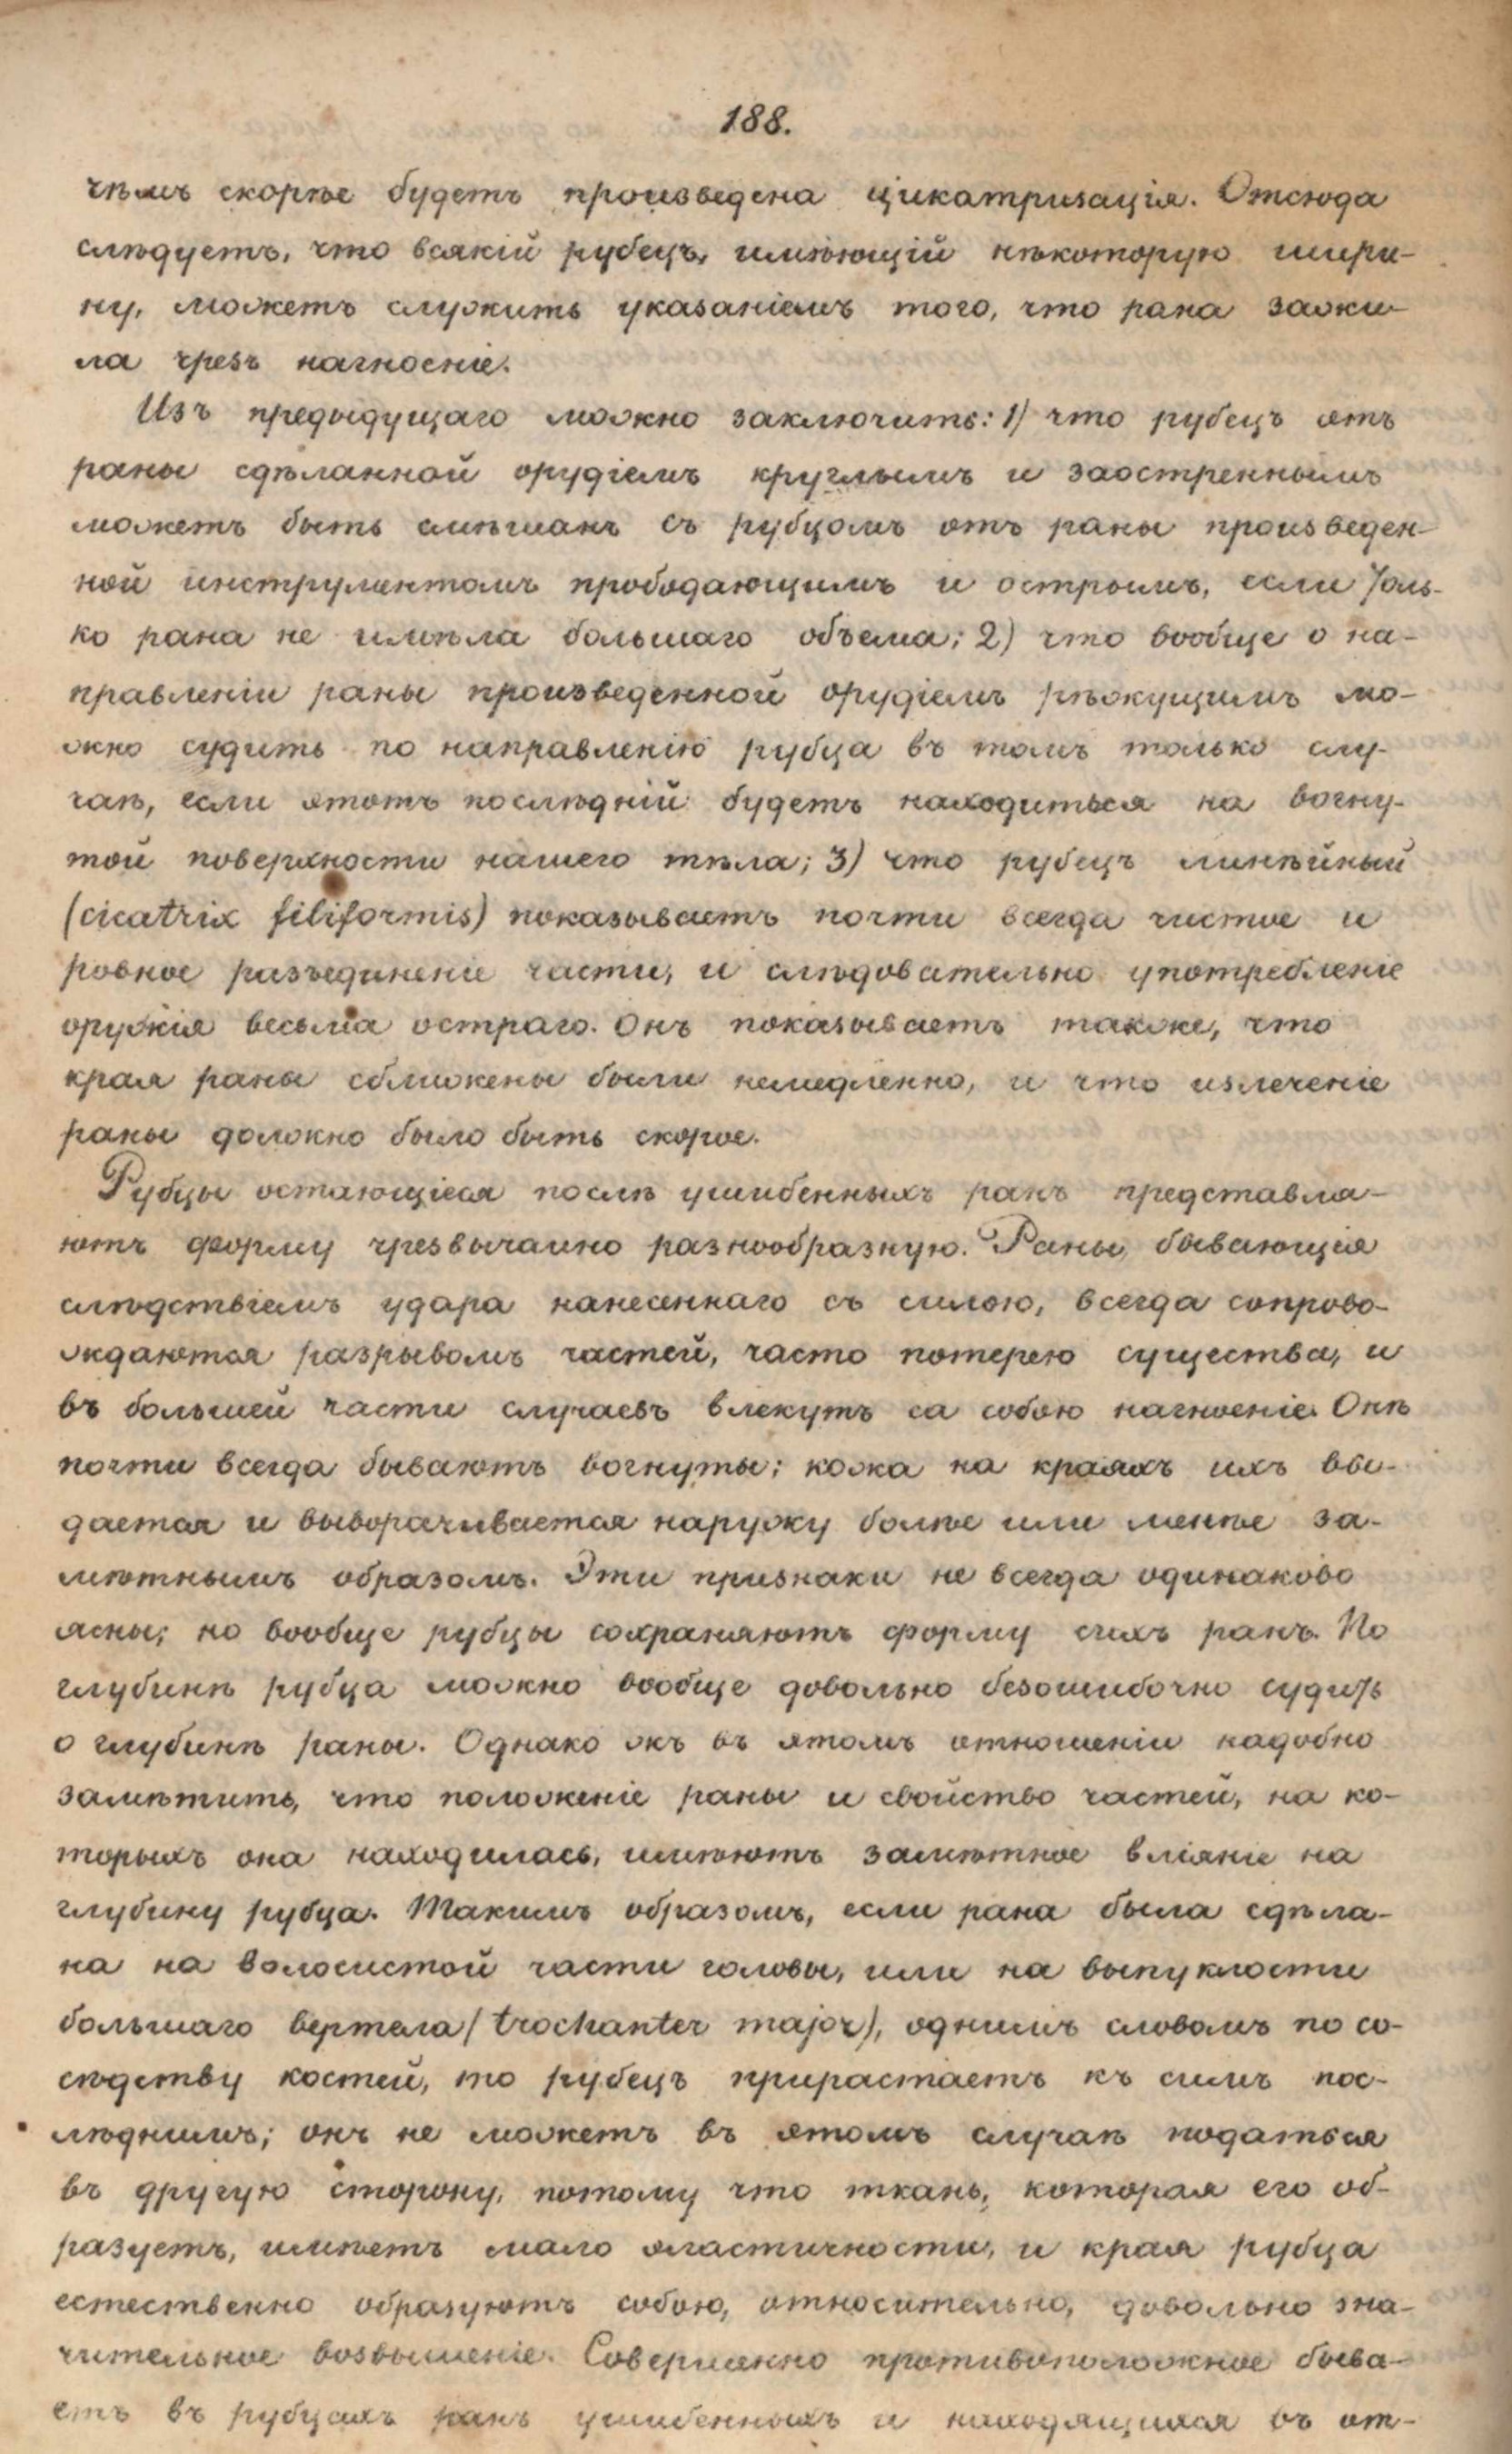 188.
чѣмъ скорѣе будетъ произведена цикатризація. Отсюда
слѣдуетъ, что всякій рубецъ, имѣющій нѣкоторую шири-
ну, можетъ служить указаніемъ того, что рана зажи-
ла чрезъ нагноеніе.
Изъ предыдущаго можно заключить: 1) что рубецъ отъ
раны сдѣланной орудіемъ круглымъ и заостреннымъ
можетъ быть смѣшанъ съ рубцомъ отъ раны произведен-
ной инструментомъ прободающимъ и острымъ, если толь-
ко рана не имѣла большаго объема; 2) что вообще о на-
правленіи раны произведенной орудіемъ рѣжущимъ мо-
жно судить по направленію рубца въ томъ только слу-
чаѣ, если этотъ послѣдній будетъ находиться на вогну-
той поверхности нашего тѣла; 3) что рубецъ линѣйный
(cicatrix filiformis) показываетъ почти всегда чистое и
ровное разъединеніе части, и слѣдовательно употребленіе
оружія весьма остраго. Онъ показываетъ также, что
края раны сближены были немедленно, и что излеченіе
раны должно было быть скорое.
Рубцы остающіеся послѣ ушибенныхъ ранъ представля-
ютъ форму чрезвычаино разнообразную. Раны, бывающія
слѣдствіемъ удара нанесеннаго съ силою, всегда сопрово-
ждаются разрывомъ частей, часто потерею существа, и
въ большей части случаевъ влекутъ са собою нагноеніе. Онѣ
почти всегда бываютъ вогнуты; кожа на краяхъ ихъ вы-
дается и выворачивается наружу болѣе или менѣе за-
мѣтнымъ образомъ. Эти признаки не всегда одинаково
ясны; но вообще рубцы сохраняютъ форму сихъ ранъ. По
глубинѣ рубца можно вообще довольно безошибочно судить
о глубинѣ раны. Однако жъ въ этомъ отношеніи надобно
замѣтить, что положеніе раны и свойство частей, на ко-
торыхъ она находилась, имѣютъ замѣтное вліяніе на
глубину рубца. Такимъ образомъ, если рана была сдѣла-
на на волосистой части головы, или на выпуклости
большаго вертела (trochanter major), однимъ словомъ по со-
сѣдству костей, то рубецъ прирастаетъ къ симъ пос-
лѣднимъ; онъ не можетъ въ этомъ случаѣ податься
въ другую сторону, потому что ткань, которая его об-
разуетъ, имѣетъ мало эластичности, и края рубца
естественно образуютъ собою, относительно, довольно зна-
чительное возвышеніе. Совершенно противоположное быва-
етъ въ рубцахъ ранъ ушибенныхъ и находящихся въ от-